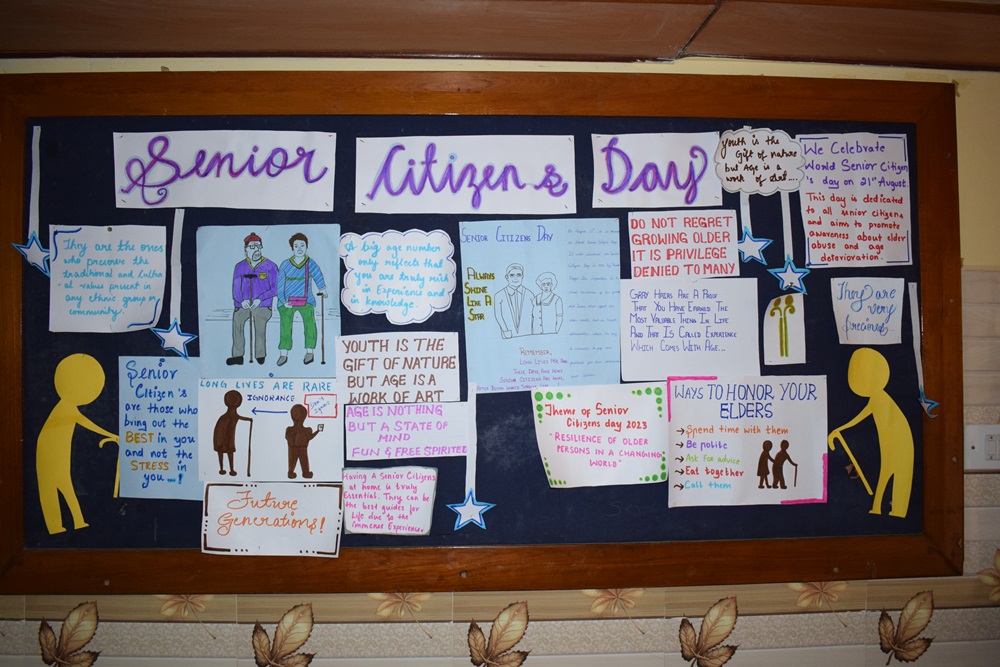 Senior
Citizen s
Day
Youth is the
Gift of nature
but Age is a
work of Art....
We Celebrate
World Senior Citizen
's day on 21st August
This day is dedicated
to all senior citizens
and aim to promote
awareness about elder
abuse and age
deterioration.
They are the ones
who preserve the
traditional and Cultur-
al values present in
any ethnic group or
community.
A big age number
only reflects that
you are truly rich
in Experience and
in knowledge.
SENIOR CITIZENS DAY
ALWAYS
SHINE
LIKE A
STAR
REMEMBER
DO NOT REGRET
GROWING OLDER
IT IS PRIVILEGE
DENIED TO MANY
GRAY HAIRS ARE A PROOF
THAT YOU HAVE EARNED THE
MOST VALUABLE THING IN LIFE
AND THAT IS CALLED EXPERIENCE
WHICH COMES WITH AGE...
They are
very
Senior
Citizen's
are those who
bring out the
BEST in you
and not the
STRESS in
you...!
LONG LIVES ARE RARE
IGNORANCE
YOUTH IS THE
GIFT OF NATURE
BUT AGE IS A
WORK OF ART
AGE IS NOTHING
BUT A STATE OF
MIND
FUN & FREE SPIRITEE
Having A Senior Citizens
at home is truly
Essential. They can be
the best guides for
Life due to the
immense Experience.
Future
Generations!
Theme of Senior
Citizens day 2023
"RESILIENCE OF OLDER
PERSONS IN A CHANGING
WORLD"
WAYS TO HONOR YOUR
ELDERS
→ Spend time with them
→ Be polite
→ Ask For advice
→ Eat together
→ Call them